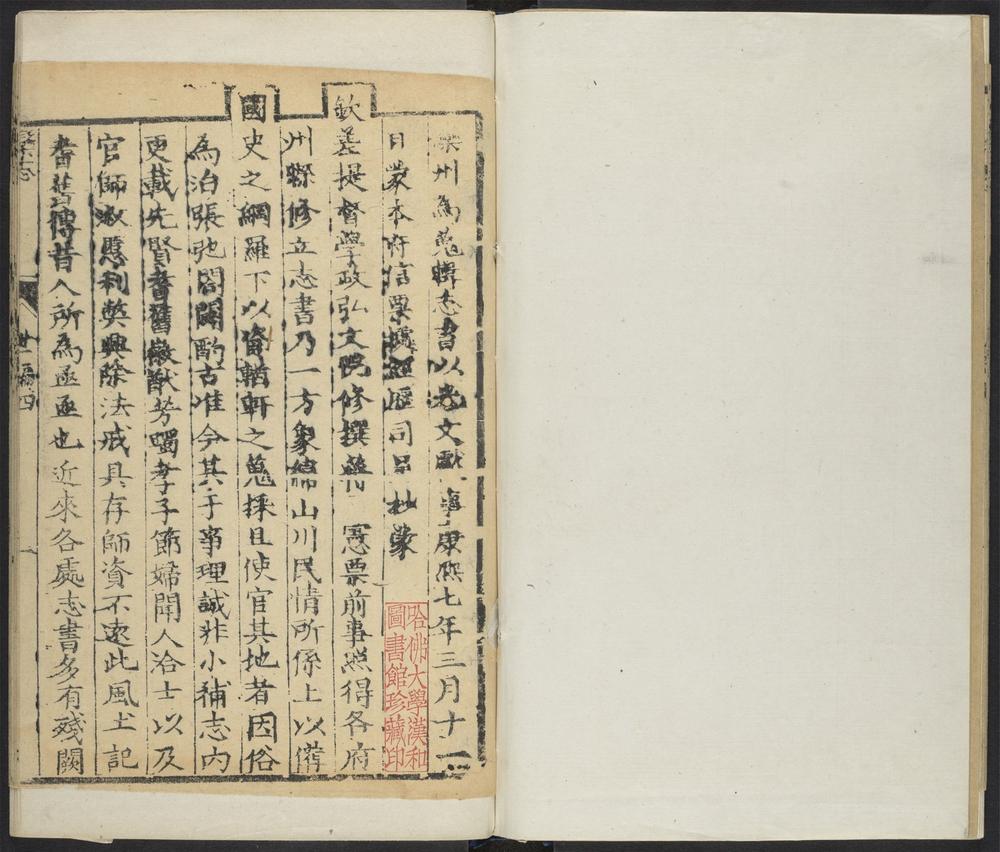 州為蒐輯志書以光文獻事康熙七年三月十一
日蒙本府信票據經歷司呈抄蒙
欽差提督學政弘文院修撰蔣 憲票前事照得各府
州縣修立志書乃一方象緯山川民情所係上以備
國史之網羅下以資輶軒之蒐採且使官其地者因俗
為治張弛閤闢酌古准今其于事理誠非小補志內
更載先賢耆舊徽猷芳躅孝子節婦聞人洽士以及
官師淑慝利獘興除法戒具存師資不遠此風土記
耆舊傳昔人所為亟亟也近來各處志書多有殘闕
哈佛大學漢和
圖書館珍藏印